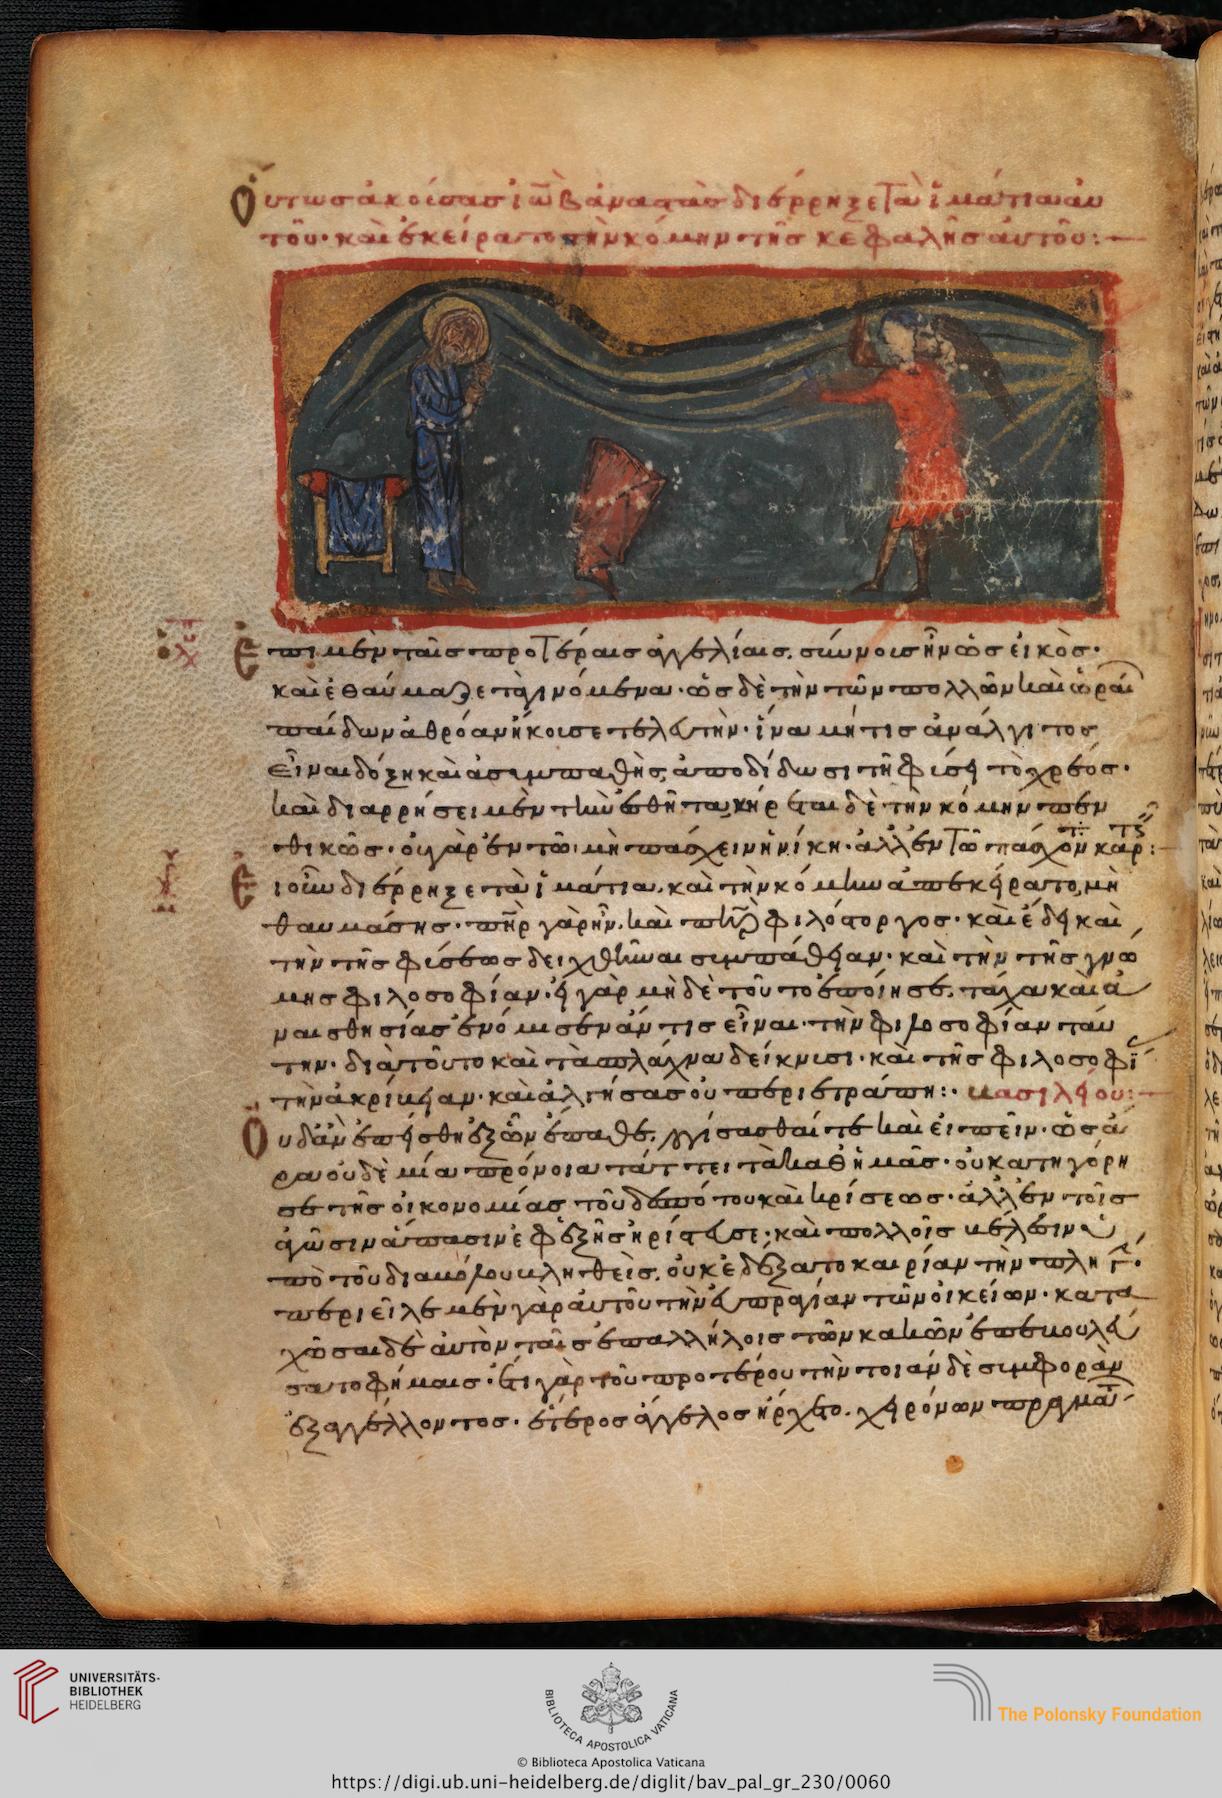 Οὕτως ἀκούσας ἰὼβ ἀναστὰς διέρρηξε τὰ ἱμάτια αὐ
τοῦ· καὶ ἐκείρατο τὴν κόμην τῆς κεφαλῆς αὐτοῦ:
Ἐπι μὲν ταῖς προτέραις ἀγγελίαις, σύννοις ἦν ὡς εἰκὸς·
καὶ ἐθαύμαζε τὰ γινόμενα· ὡς δὲ τὴν τῶν πολλῶν καὶ ὡραί
παίδων ἀθρόαν ἤκουσε τελευτὴν· ἵνα μή τις ἀνάλγιτος
εἶναι δόξῃ καὶ ἀσυμπαθὴς, ἀποδίδωσι τῇ φύσει τὸ χρέος·
καὶ διαρρήσει μὲν τὴν ἐσθῆτα, κείρεται δὲ τὴν κόμην πεν
θικῶς· οὐ γὰρ ἐν τῶ μὴ πάσχειν ἡ νίκη· ἀλλ' ἐν τῶ πάσχοντα καρτ
Εἰ οὖν διέρρηξε τὰ ἱμάτια, καὶ τὴν κόμην ἀπεκείρατο, μὴ
θαυμάσῃς· πηρ γὰρ ἦν, καὶ πηρ φιλόστοργος· καὶ ἔδει καὶ
τὴν τῆς φύσεως δειχθῆναι συμπάθειαν· καὶ τὴν τῆς γνώ
μης φιλοσοφίαν· εἰ γὰρ μὴ δὲ τοῦτο ἐποίησε, τάχα καὶ ἀ
ναισθησίας ἐνόμισεν ἄν τις εἶναι τὴν φιλοσοφίαν ταύ
την· διὰ τοῦτο καὶ τὰ σπλάχνα δείκνυσι· καὶ τῆς φιλοσοφί
τὴν ἀκρίβειαν· καὶ ἀλγήσας οὐ περιετράπη:· βασιλείου:
Οὐδὰν ἐπείσθη ἐξ ὧν ἔπαθε, λογίσασθαί τε καὶ εἰπεῖν· ὡς ἄ
ρα οὐδὲ μία πρόνοια τάττει τὰ καθ' ἡμᾶς· οὐ κατηγόρη
σε τῆς οἰκονομίας τοῦ δεσπότου καὶ κρίσεως· ἀλλ' ἐν τοῖς
ἀγῶσιν ἅπασιν ἐφεξῆς ἠρίστευσε· καὶ πολλοῖς βέλεσιν ὑ
πὸ τοῦ διαβόλου βληθεὶς, οὐκ ἐδέξατο καιρίαν τὴν πληγ
περιεῖλε μὲν γὰρ αὐτοῦ τὴν εὐπραγίαν τῶν οἰκείων· κατα
χῶσαι δὲ αὐτὸν ταῖς ἐπαλλήλοις τῶν κακῶν ἐπεβουλεύ
σατο φήμαις· ἔτι γὰρ τοῦ προτέρου τὴν τοιάνδε συμφορὰν
ἐξαγγέλλοντος· ἕτερος ἄγγελος ἤρχετο, χειρόνων πραγμάτ
UNIVERSITÄTS-
BIBLIOTHEK
HEIDELBERG
BIBLIOTECA APOSTOLICA VATICANA
The Polonsky Foundation
© Biblioteca Apostolica Vaticana
https://digi.ub.uni-heidelberg.de/diglit/bav_pal_gr_230/0060